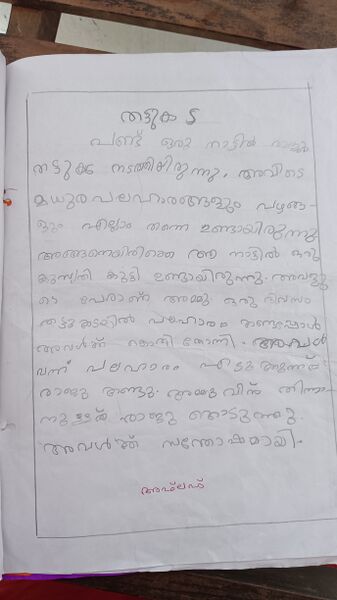 തട്ടുകട
പണ്ട് ഒരു നാട്ടിൽ രാജു
തട്ടുകട നടത്തിയിരുന്നു. അവിടെ
മധുരപലഹാരങ്ങളും പഴങ്ങ-
ളും എല്ലാം തന്നെ ഉണ്ടായിരുന്നു.
അങ്ങനെയിരിക്കെ ആ നാട്ടിൽ ഒരു
കുസൃതി കുട്ടി ഉണ്ടായിരുന്നു. അവളു
ടെ പേരാണ് അമ്മു. ഒരു ദിവസം
തട്ടുകടയിൽ പലഹാരം കണ്ടപ്പോൾ
അവൾക്ക് കൊതി തോന്നി. അവൾ
വന്ന് പലഹാരം എടുക്കുന്നത്
രാജു കണ്ടു. അമ്മുവിന് തിന്നാ-
നുള്ളത് രാജു കൊടുത്തു.
അവൾക്ക് സന്തോഷമായി.